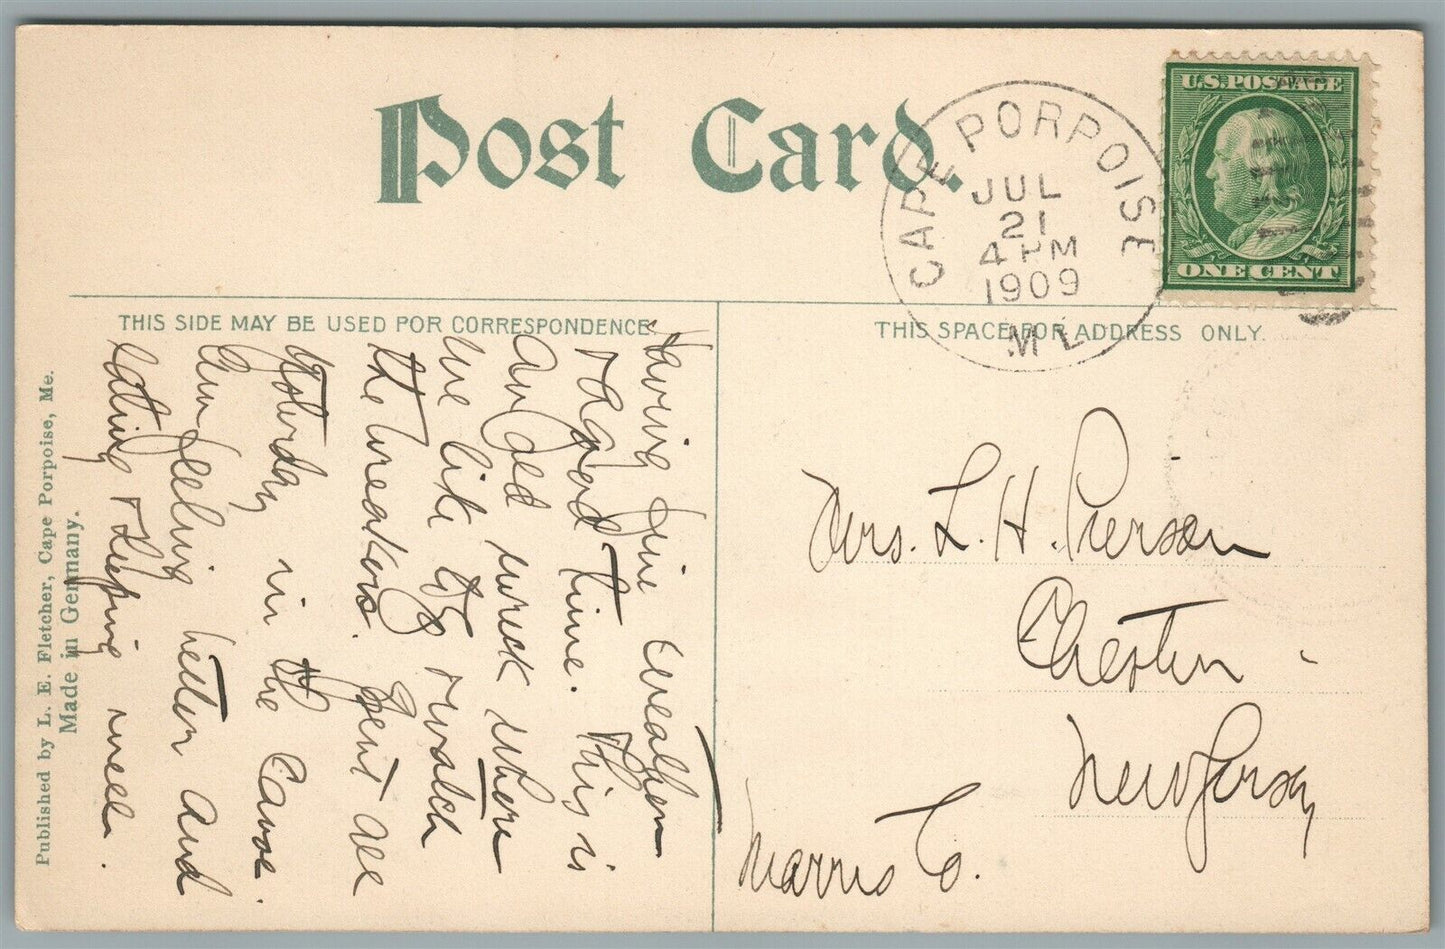 Post Card.
CAPE PORPOISE
JUL
21
4 PM
1909
ME
U.S. POSTAGE
ONE CENT
THIS SIDE MAY BE USED FOR CORRESPONDENCE.
THIS SPACE FOR ADDRESS ONLY.
Having fine weather
& a good time. This is
an old wreck where
we like to & watch
the breakers. Spent all
Yesterday in the Canoe.
Am feeling better and
eating & sleeping well.
Mrs. L. H. Pierson
Chester -
New Jersey
Morris Co.
Published by L. E. Fletcher, Cape Porpoise, Me.
Made in Germany.